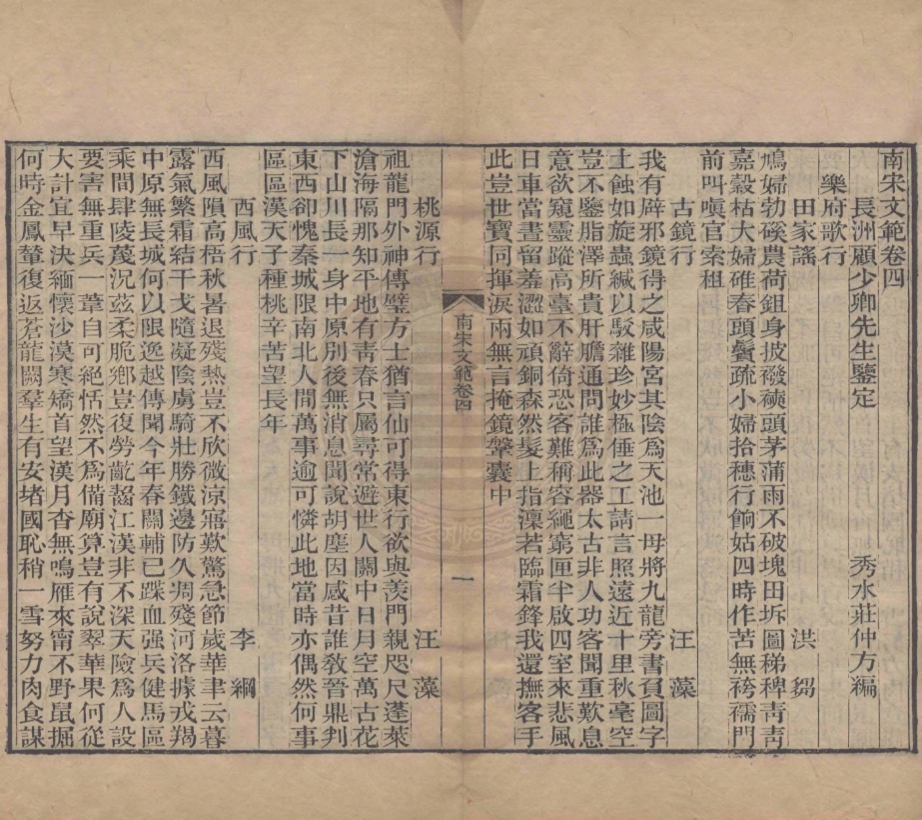 南宋文範卷四
長洲顧少卿先生鑒定　秀水莊仲方編
樂府歌行
田家謠　洪芻
鳩婦勃磎農荷鉏身披襏襫頭茅蒲雨不破塊田坼圖稊稗青青
嘉穀枯大婦碓舂頭鬢疏小婦拾穗行餉姑四時作苦無袴襦門
前叫嗔官索租
古鏡行　汪藻
我有辟邪鏡得之咸陽宮其陰爲天池一母將九龍旁書負圖字
土蝕如旋蟲緘以駮雜珍妙極倕之工請言照遠近十里秋毫空
豈不鑒脂澤所貴肝膽通問誰爲此器太古非人功客聞重歎息
意欲窺靈蹤高臺不辭倚恐客難稱容繩窮匣半啟四室來悲風
日車當晝留羞澀如頑銅森然髮上指凜若臨霜鋒我還撫客手
此豈世寶同揮淚兩無言掩鏡鞶囊中
南宋文範卷四
一
桃源行　汪藻
祖龍門外神傳璧方士猶言仙可得東行欲與羨門親咫尺蓬萊
滄海隔那知平地有青春只屬尋常避世人關中日月空萬古花
下山川長一身中原別後無消息聞說胡塵因感昔誰教晉鼎判
東西卻愧秦城限南北人間萬事逾可憐此地當時亦偶然何事
區區漢天子種桃辛苦望長年
西風行　李綱
西風隕高梧秋暑退殘熱豈不欣微涼寤歎驚急節歲華聿云暮
露氣繁霜結干戈隨凝陰虜騎壯勝鐵邊防久凋殘河洛據戎羯
中原無長城何以限逸越傳聞今年春關輔已蹀血强兵健馬區
乘間肆陵蔑況茲柔脆鄉豈復勞齕齧江漢非不深天險爲人設
要害無重兵一葦自可絕恬然不爲備廟算豈有說翠華果何從
大計宜早決緬懷沙漠寒矯首望漢月杳無鳴雁來甯不野鼠掘
何時金鳳輦復返蒼龍闕羣生有安堵國恥稍一雪努力肉食謀